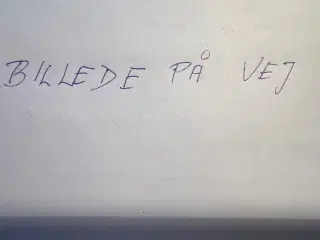 BILLEDE PÅ VEJ